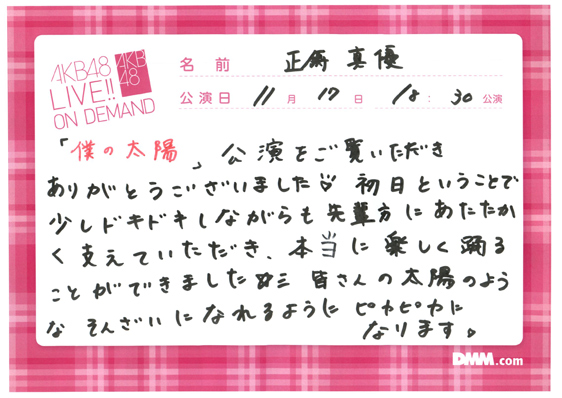 AKB48
LIVE!!
ON DEMAND
AKB
48
名前 正鋳真優
公演日 11月17日 18:30公演
「僕の太陽」公演をご覧いただき
ありがとうございました♡ 初日ということで
少しドキドキしながらも先輩方にあたたか
く支えていただき、本当に楽しく踊る
ことができました 皆さんの太陽のよう
な そんざいになれるように ピカピカに
なります。
DMM.com